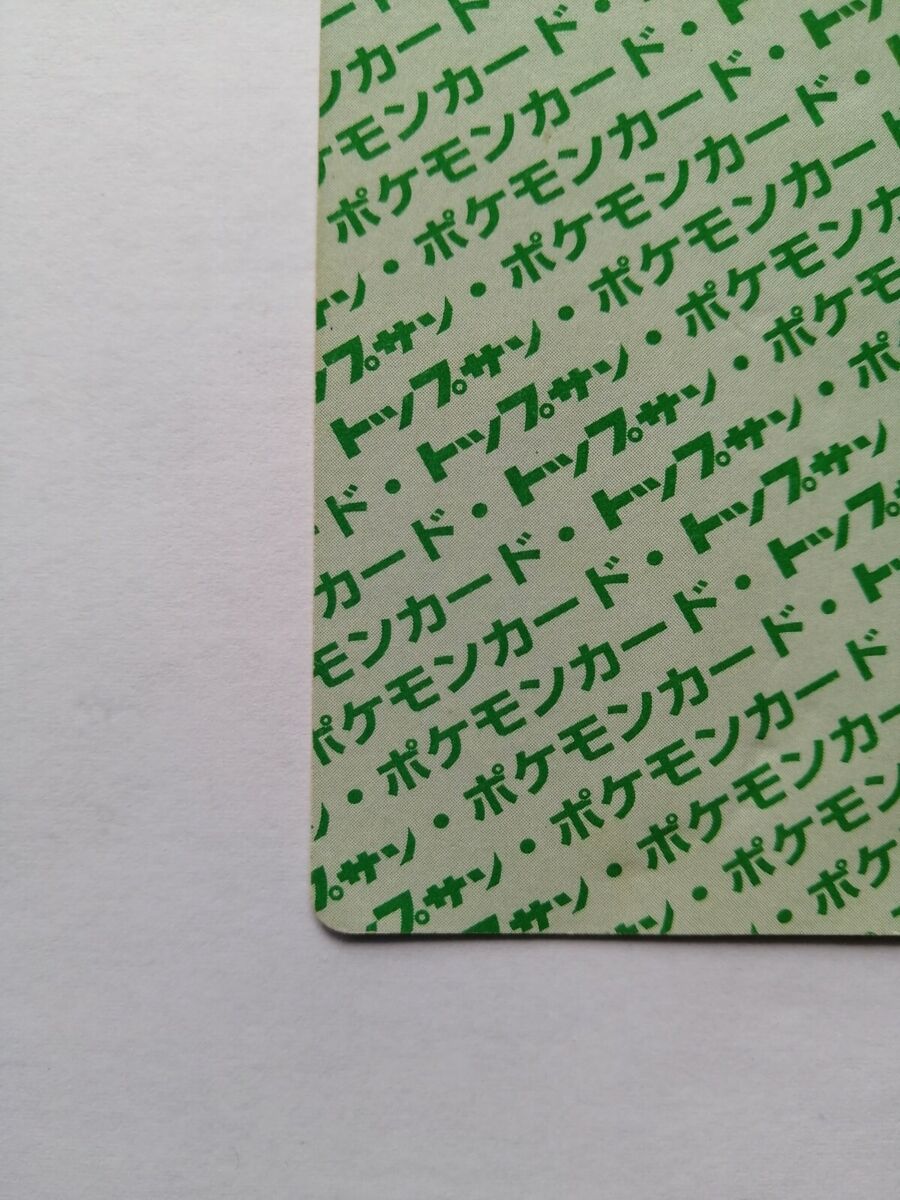 ー
ンカード
ケモンカード・
ポケモンカード・ト
ン・ポケモンカード・トップ
プサン・ポケモンカード・
トップサン・ポケモンカード
ド・トップサン・ポケモンカ
カード・トップサン・ポケモ
モンカード・トップサン・ポ
ポケモンカード・トップサン
ン・ポケモンカード・トップ
プサン・ポケモンカード・ト
プサン・ポケモンカード
サン・ポケモンカ
サン・ポケモン
・ポケ